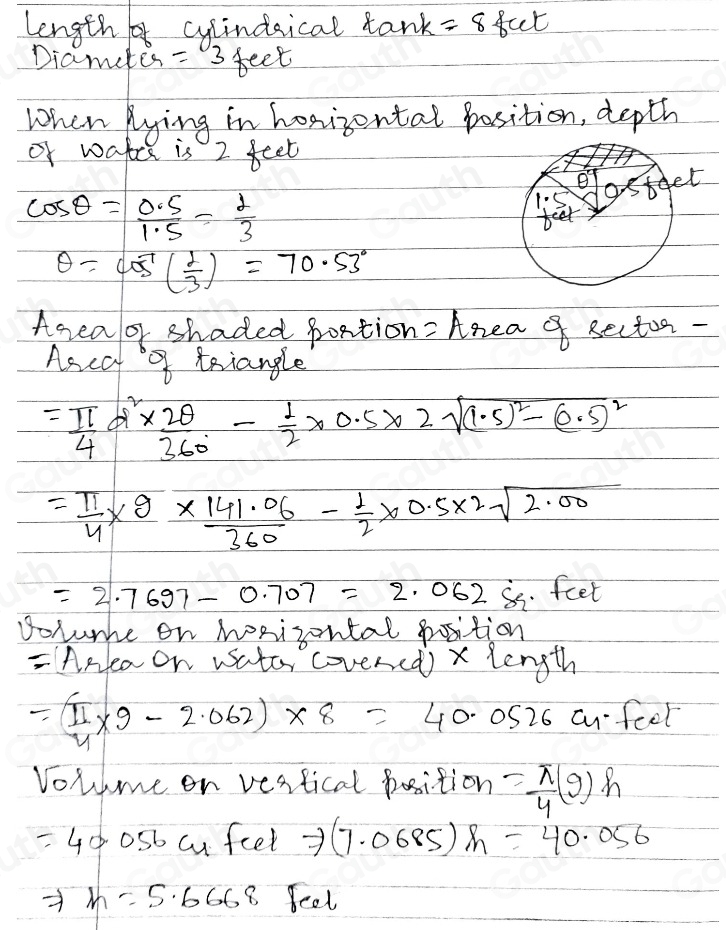 Length of cylindrical tank = 8 feet
Diameter = 3 feet
When lying in horizontal position, depth
of water is 2 feet
θ
1.5 feet
0.5 feet
cosθ = 0.5/1.5 = 1/3
θ = cos⁻¹(1/3) = 70.53°
Area of shaded portion = Area of sector -
Area of triangle
= π/4 d² × 2θ/360° - 1/2 × 0.5 × 2 √(1.5)² - (0.5)²
= π/4 × 9 × 141.06/360 - 1/2 × 0.5 × 2 √2.00
= 2.7697 - 0.707 = 2.062 sq. feet
Volume on horizontal position
= (Area on water covered) × length
= (π/4 × 9 - 2.062) × 8 = 40.0526 cu. feet
Volume on vertical position = π/4 (9) h
= 40.056 cu feet ⇒ (7.0685) h = 40.056
⇒ h = 5.6668 feet